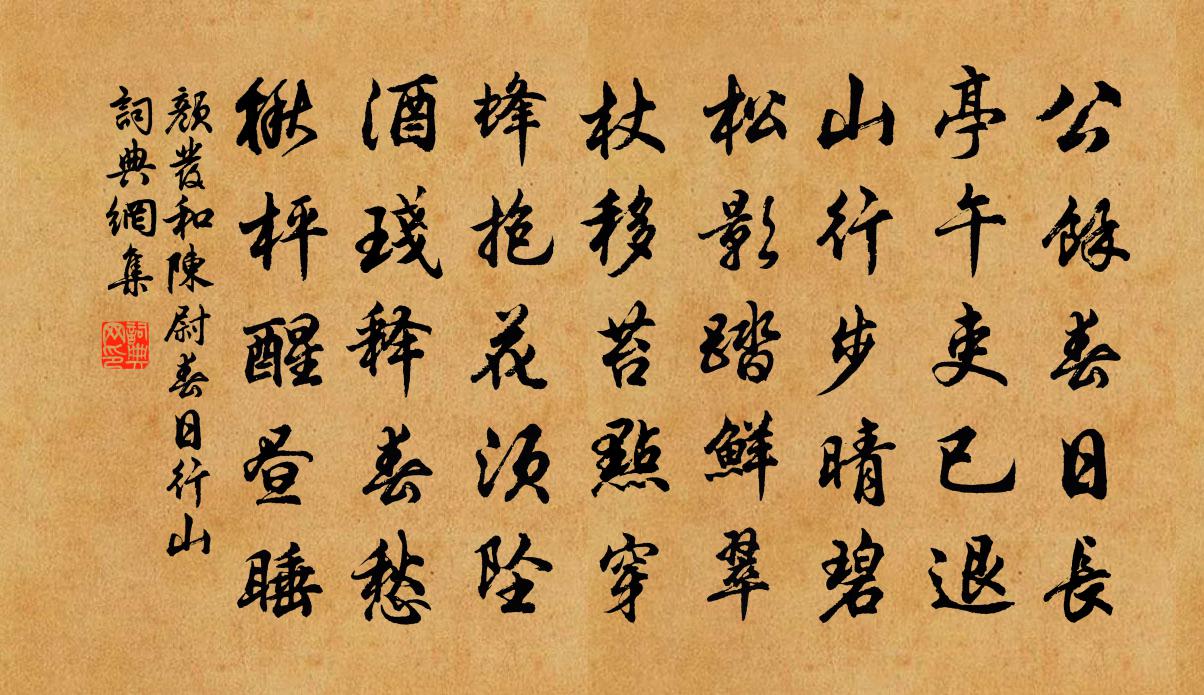 公餘春日長
亭午吏已退
山行步晴碧
松影踏鮮翠
杖移苔點穿
蜂抱花須墜
酒琖釋春愁
楸枰醒昼睡
顏發和陳尉春日行山
詞典網集
詞典网印